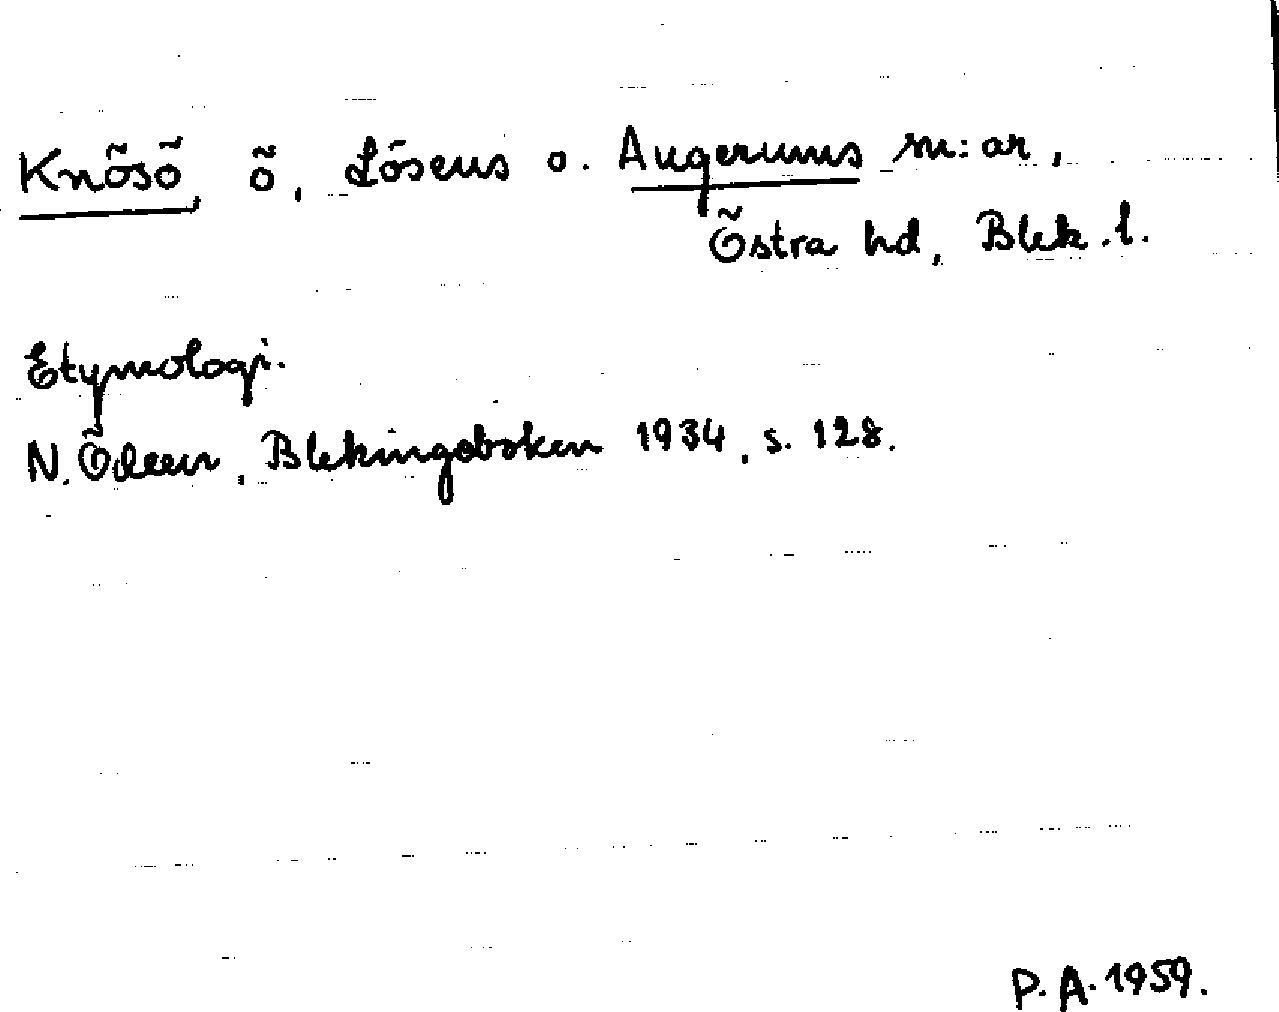 Knösö, ö, Lösens o. Augerums sn:ar,
Östra hd, Blek. l.
Etymologi.
N. Ödeen, Blekingeboken 1934, s. 128.
P. A. 1959.